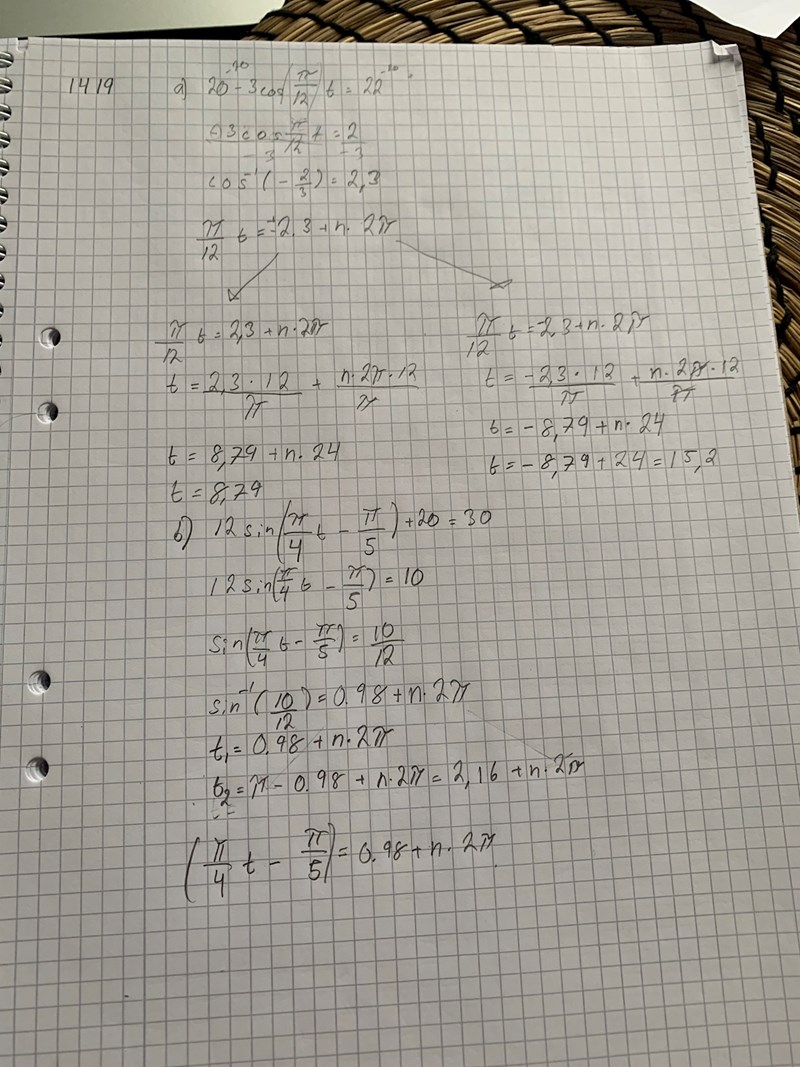 1419 a) 20^{-20} - 3cos(π/12)t = 22^{-20}
-3cos π/12 t / -3 = 2/-3
cos^{-1}(-2/3) = 2,3
π/12 t = ±2.3 + n·2π
π/12 t = 2,3 + n·2π
t = 2,3·12/π + n·2π·12/π
t = 8,79 + n·24
t = 8,79
π/12 t = -2,3 + n·2π
t = -2,3·12/π + n·2π·12/π
t = -8,79 + n·24
t = -8,79 + 24 = 15,2
b) 12sin(π/4 t - π/5) + 20 = 30
12sin(π/4 t - π/5) = 10
sin(π/4 t - π/5) = 10/12
sin^{-1}(10/12) = 0.98 + n·2π
t₁ = 0.98 + n·2π
t₂ = π - 0.98 + n·2π = 2,16 + n·2π
(π/4 t - π/5) = 0.98 + n·2π